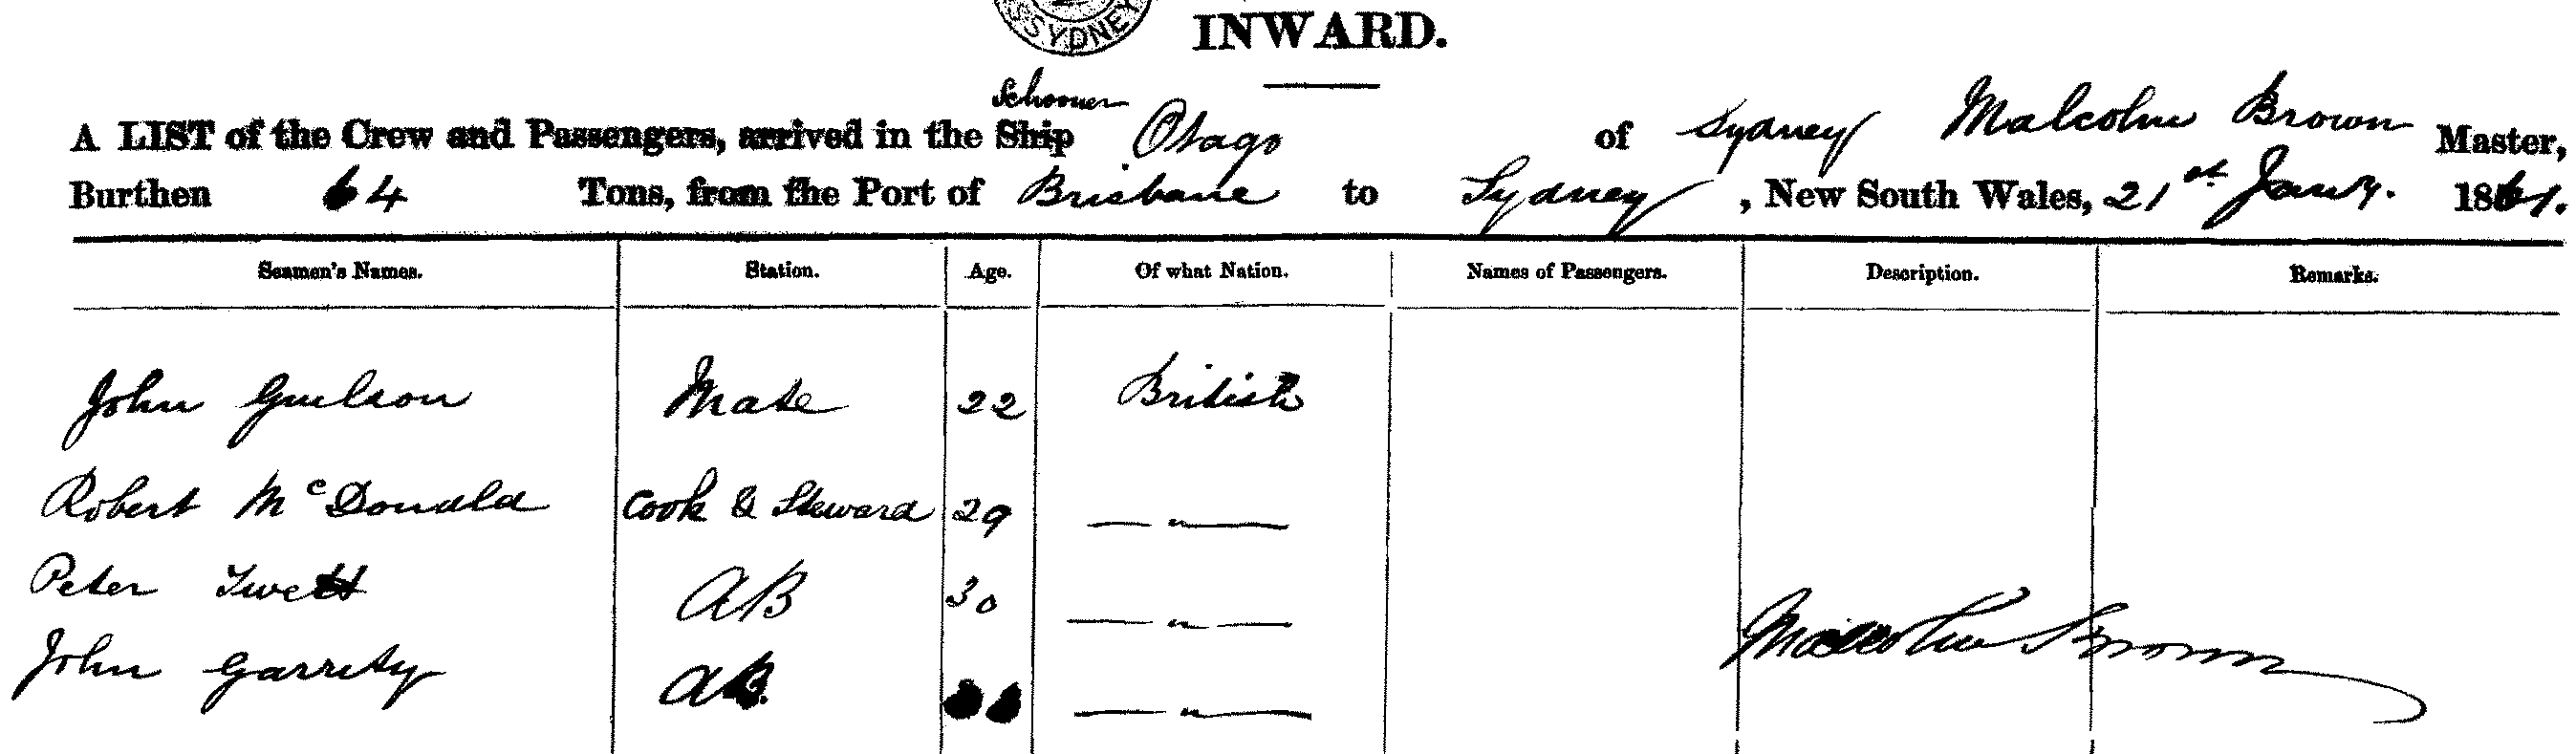 SYDNEY
INWARD.
Schooner
A LIST of the Crew and Passengers, arrived in the Ship Otago of Sydney Malcolm Brown Master,
Burthen 64 Tons, from the Port of Brisbane to Sydney, New South Wales, 21st Jany. 1861.
Seamen's Names. Station. Age. Of what Nation. Names of Passengers. Description. Remarks.
John Mate 22 British
Robert McDonald Cook & Steward 29 — " —
Peter Twett AB 30 — " —
John Garrity AB — " —
Malcolm Brown